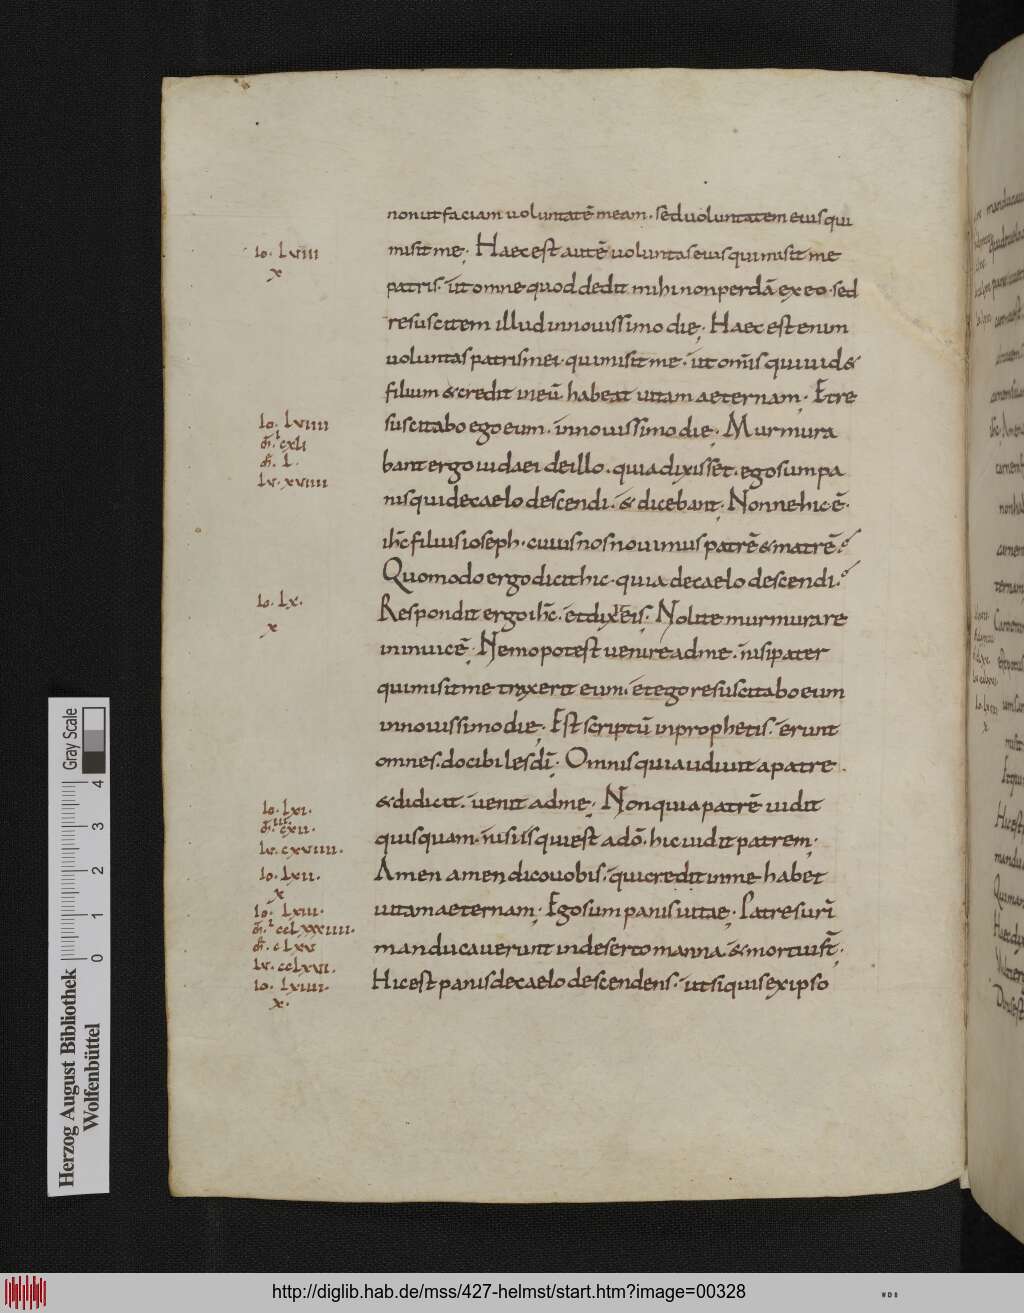 non ut faciam uoluntatē meam. sed uoluntatem eius qui
misit me. Haec est autē uoluntas eius qui misit me
patris. ut omne quod dedit mihi non perdā ex eo. sed
resuscitem illud in nouissimo die. Haec est enim
uoluntas patris mei. qui misit me. ut om̄is qui uid&
filium & credit in eū. habeat uitam aeternam. Et re
suscitabo ego eum. in nouissimo die. Murmura
bant ergo iudaei de illo. quia dixisset. ego sum pa
nis qui de caelo descendi. & dicebant. Nonne hic ē.
ih̄c filius ioseph. cuius nos nouimus patrē & matrē?
Quomodo ergo dicit hic. quia de caelo descendi?
Respondit ergo ih̄c. et dixit eis. Nolite murmurare
in inuicē. Nemo potest uenire ad me. nisi pater
qui misit me traxerit eum. et ego resuscitabo eum
in nouissimo die. Est scriptū in prophetis. erunt
omnes. docibiles dī. Omnis qui audiuit a patre.
& didicit. uenit ad me. Non quia patrē uidit
quisquam. nisi is qui est a dō. hic uidit patrem.
Amen amen dico uobis. qui credit in me habet
uitam aeternam. Ego sum panis uitae. Patres urī
manducauerunt in deserto manna. & mortui st̄.
Hic est panis de caelo descendens. ut si quis ex ipso
Io. LVIII
x
Io. LVIIII
m̄. cxLI
m̄. L.
Lv. xVIIII
Io. Lx.
x
Io. LxI.
m̄. cxII.
Lv. cxVIIII.
Io. LxII.
x
Io. LxIII.
m̄. ccLxxxIIII.
m̄. cLxv
Lv. ccLxVI.
Io. LxIIII.
x.
Herzog August Bibliothek
Wolfenbüttel
Gray Scale
0 1 2 3 4
http://diglib.hab.de/mss/427-helmst/start.htm?image=00328